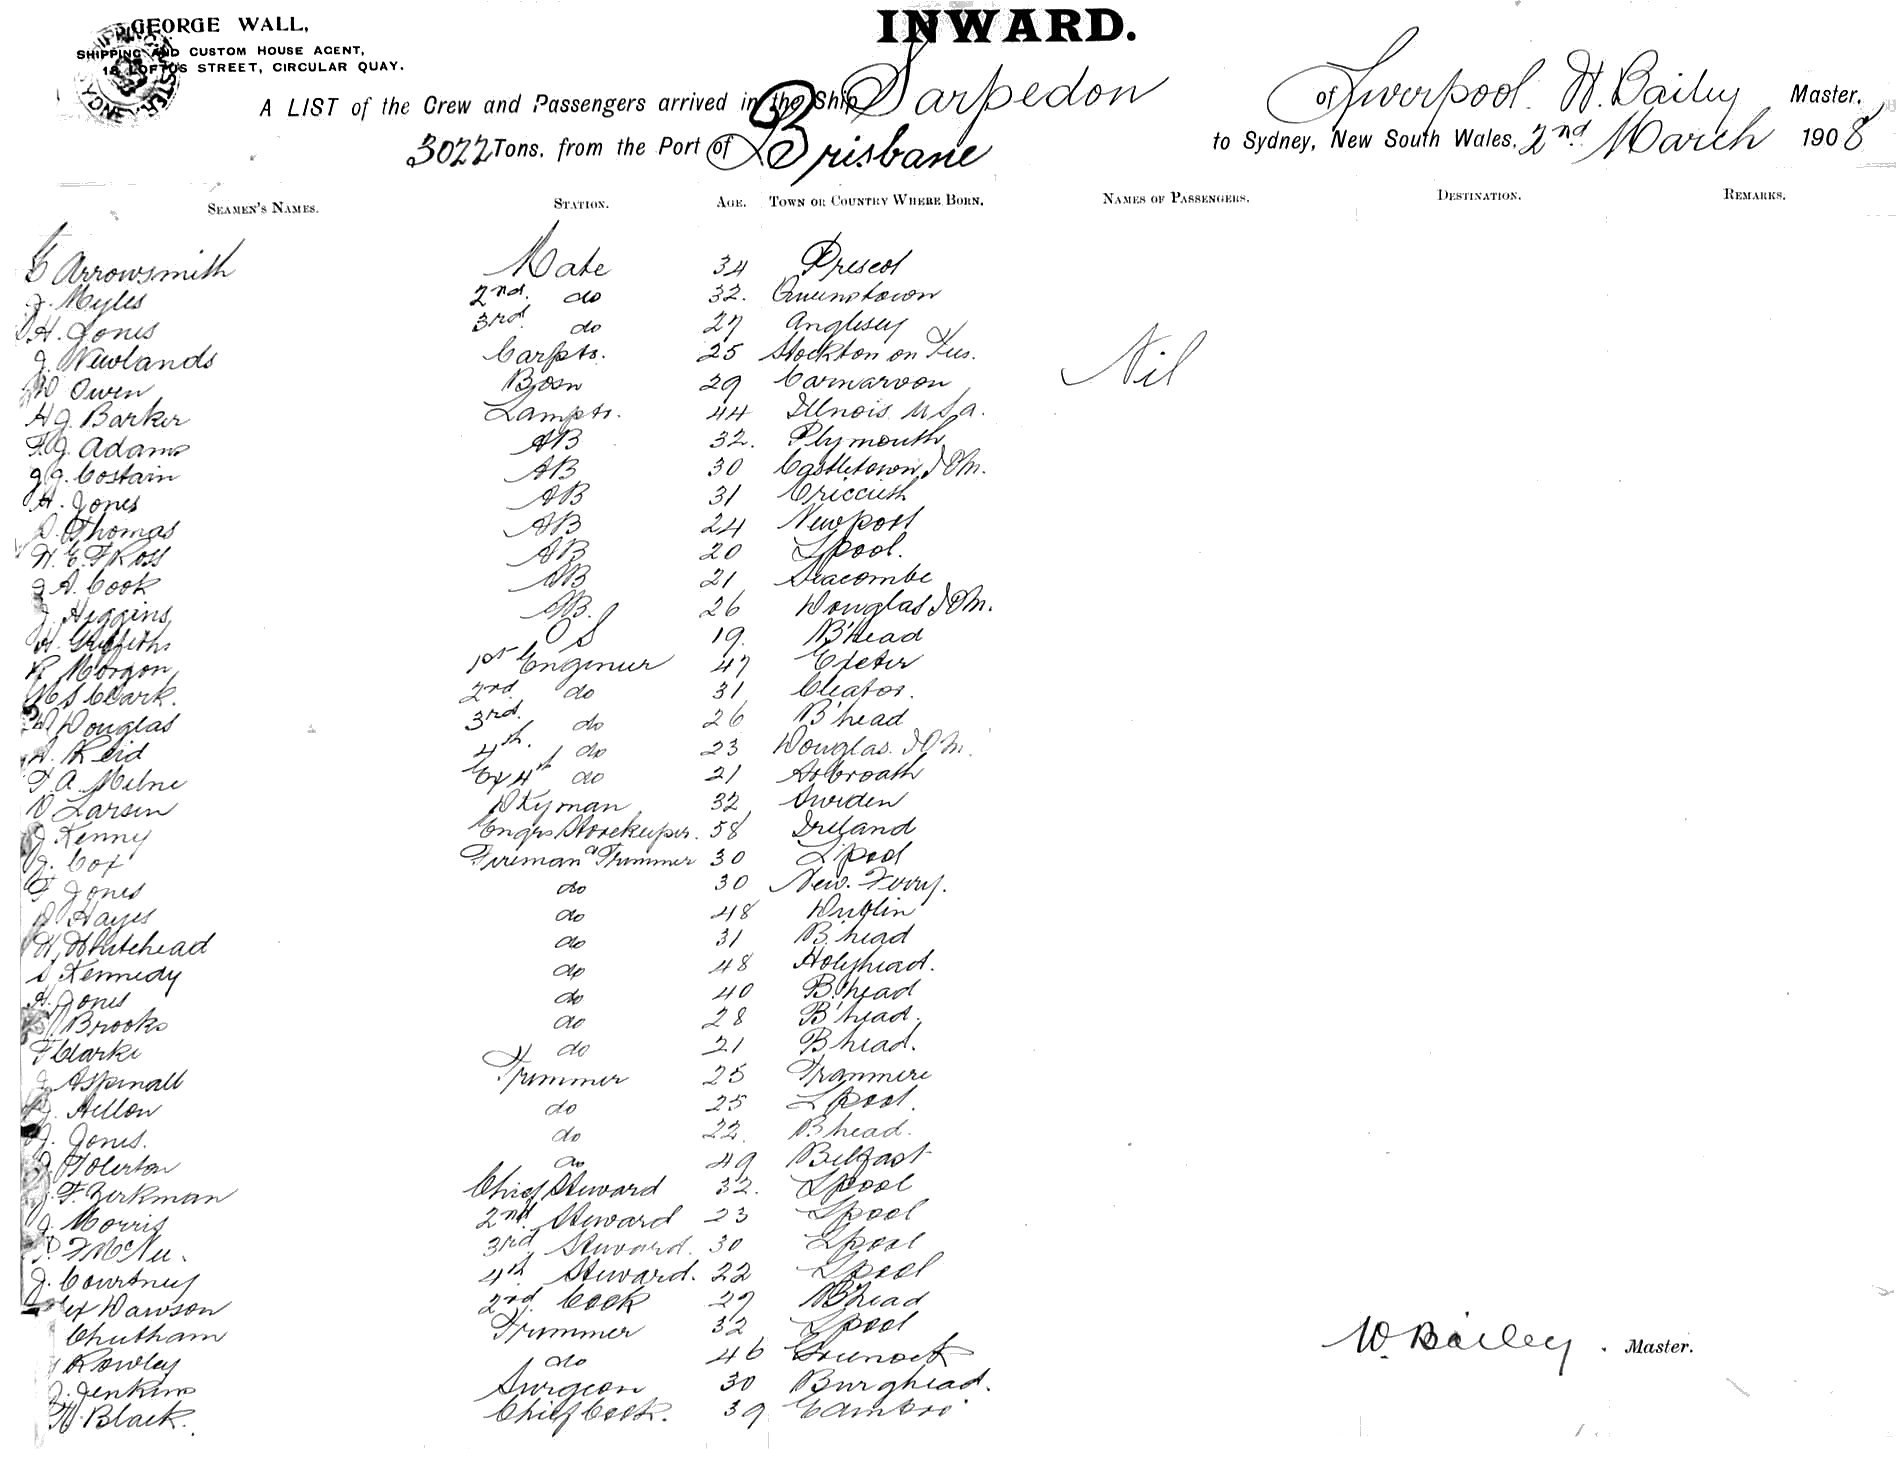 GEORGE WALL,
SHIPPING AND CUSTOM HOUSE AGENT,
18 LOFTUS STREET, CIRCULAR QUAY.
INWARD.
A LIST of the Crew and Passengers arrived in the Ship Sarpedon of Liverpool. W. Bailey Master,
3022 Tons, from the Port of Brisbane to Sydney, New South Wales, 2nd March 1908
SEAMEN'S NAMES. STATION. AGE. TOWN OR COUNTRY WHERE BORN. NAMES OF PASSENGERS. DESTINATION. REMARKS.
Arrowsmith Mate 34 Prescot
J. Myles 2nd. do 32. Queenstown
H. Jones 3rd. do 27 Anglesey
J. Newlands Carptr. 25 Stockton on Tees.
W Owen Bosn 29 Carnarvon
Nil
H J. Barker Lamptr. 44 Illnois U S a.
F. J. Adams AB 32. Plymouth
J J. Costain AB 30 Castletown I O M.
H. Jones AB 31 Criccieth
D. Thomas AB 24 Newport
W. E. F Ross AB 20 L'pool.
J A. Cook AB 21 Seacombe
J. Higgins AB. 26 Douglas I O M.
W. Griffiths O S 19. B'head
R Morgan 1st Engineer 47 Exeter
W S Clark. 2nd. do 31 Cleator.
W Douglas 3rd. do 26 B'head
A. Reid 4th. do 23 Douglas. I O M.
F. A. Milne Ex 4th do 21 Arbroath
O Larsen Dkyman 32 Sweden
J. Kenny Engrs Storekeeper. 58 Ireland
J. Cox Fireman & Trimmer 30 L'pool
F Jones do 30 New. Ferry.
D Hayes do 48 Dublin
W. Whitehead do 31 B.head
S Kennedy do 48 Holyhead.
H. Jones do 40 B'head
Brooks do 28 B'head.
F Clarke do 21 B head.
J Aspinall Trimmer 25 Tranmere
J. Hellon do 25 L'pool.
J. Jones. do 22. B head.
Tolerton do 49 Belfast
J. F. Berkman Chief Steward 32. L'pool
J. Morris 2nd. Steward 23 L'pool
F McNee. 3rd. Steward. 30 L'pool
J. Courtney 4th. Steward. 22 L'pool
Dawson 2nd. Cook 27 B'head
Cheetham Trimmer 32 L'pool
Rowley do 46 Greenock
W. Bailey. Master.
J. Jenkins Surgeon 30 Burghead.
W. Black. Chief Cook. 39